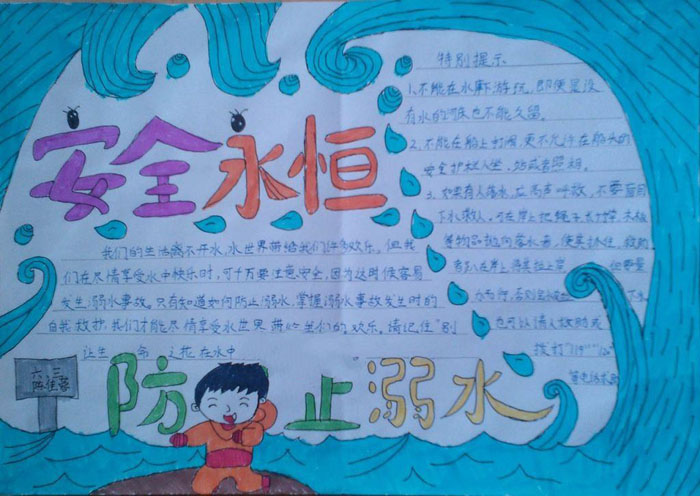 安全永恒
特别提示
1.不能在水中游玩,即使是没
有水的河床也不能久留。
2.不能在船上打闹,更不允许在船头的
安全护栏坐,站或者照相。
3.如果有人落水,应高声呼救,不要盲目
下水救人,可在岸上把绳子、木
等物品抛向落水者,使其抓住,
也可以请人救助或
拨打"119""110"
等电话求助
我们的生活离不开水,水世界带给我们许多欢乐。但我
们在尽情享受水中快乐时,可千万要注意安全,因为这时很容易
发生溺水事故。只有知道如何防止溺水,掌握溺水事故发生时的
自我救护,我们才能尽情享受水世界带给我们的欢乐。请记住"别
让生命之花在水中
六三
防止溺水